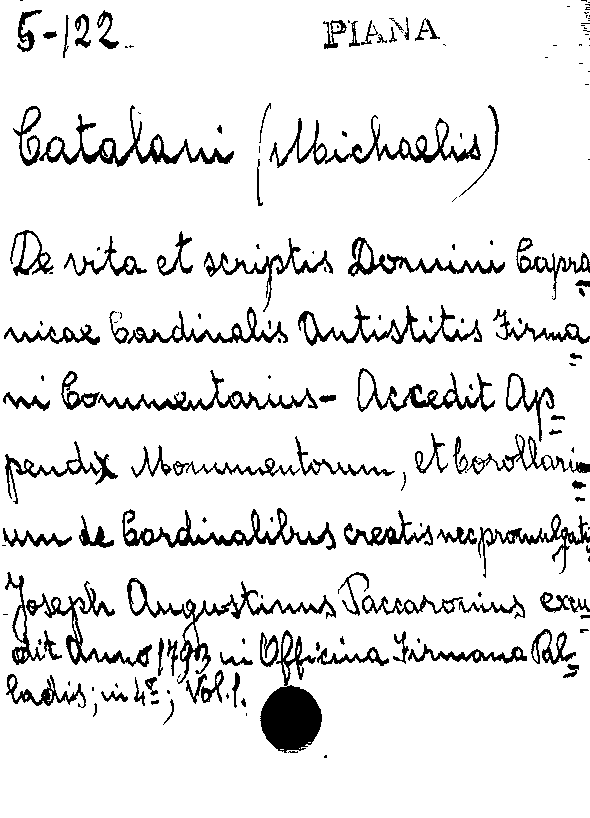 5-122 PIANA
Catalani (Michaelis)
De vita et scriptis Domini Capra=
nicae Cardinalis Antistitis Firma=
ni Commentarius- Accedit Ap=
pendix Monumentorum, et Corollari=
um de Cardinalibus creatis nec promulgati
Joseph Augustinus Paccaronius excu=
dit Anno 1793 in Officina Firmana Pal=
ladis; in 4º; Vol. 1.